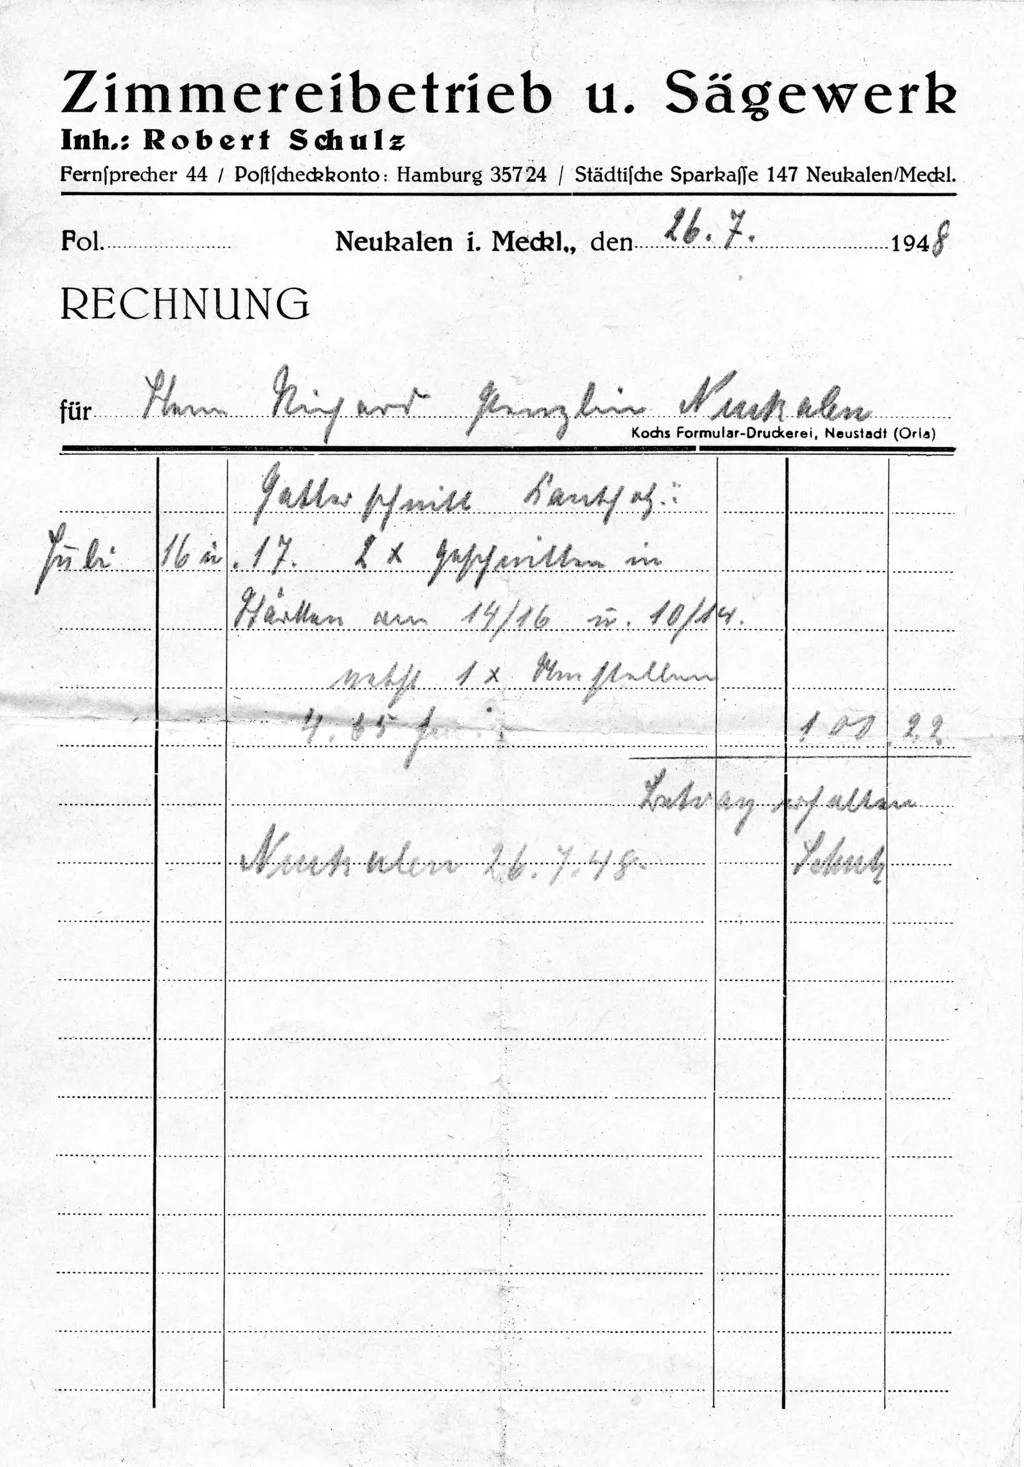 Zimmereibetrieb u. Sägewerk
Inh.: Robert Schulz
Fernſprecher 44 / Poſtſcheckkonto: Hamburg 35724 / Städtiſche Sparkaſſe 147 Neukalen/Meckl.
Fol. Neukalen i. Meckl., den 26. 7. 1948
RECHNUNG
für Herrn Richard Genzlin Neukalen
Kochs Formular-Druckerei, Neustadt (Orla)
Gatterschnitt Kantholz:
Juli 16 u. 17. 2 x geschnitten in
Stärken am 14/16 u. 10/14.
nebst 1 x Umstellen
4.65 100.22
Betrag erhalten
Neukalen 26.7.48. Schulz